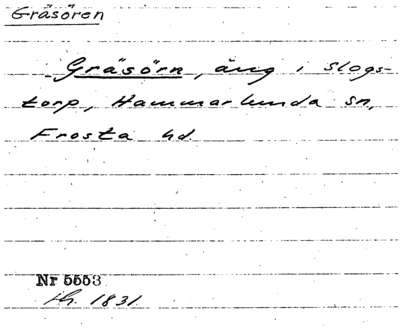 Gräsören
Gräsörn, äng i Slogs-
torp, Hammarlunda sn,
Frosta hd
Nr 5553
1831.